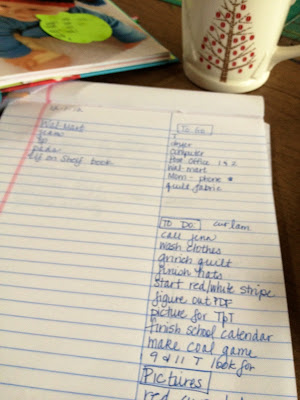 Wal-Mart
jeans
tp
pads
Elf on Shelf book
To Go
dryer
computer
Post Office 1 & 2
Wal-mart
Mom - phone *
quilt fabric
To Do
call Jenn
wash clothes
grinch quilt
finish hats
start red/white stripe
figure out PDF
picture for TpT
finish school calendar
make coal game
9 & 11 T look for
Pictures